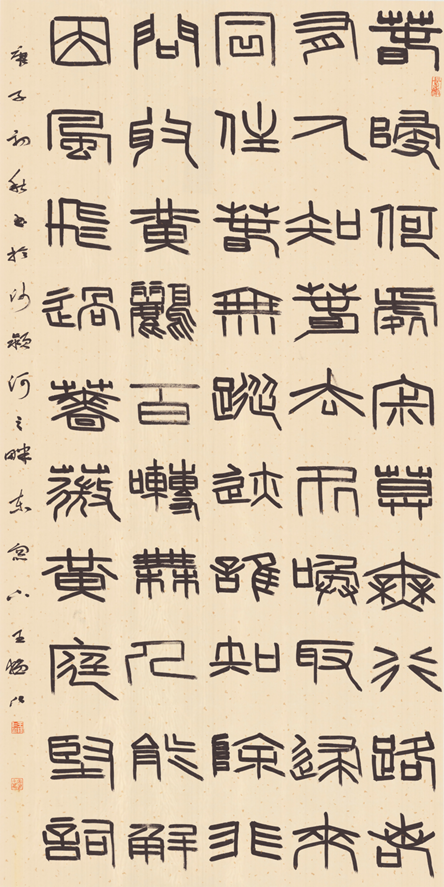 春歸何處寂寞無行路若
有人知春去处喚取歸來
同住春無蹤迹誰知除非
問取黃鸝百囀無人能解
因風飛過薔薇黃庭堅詞
庚子初秋書於沙潁河之畔東窗下王